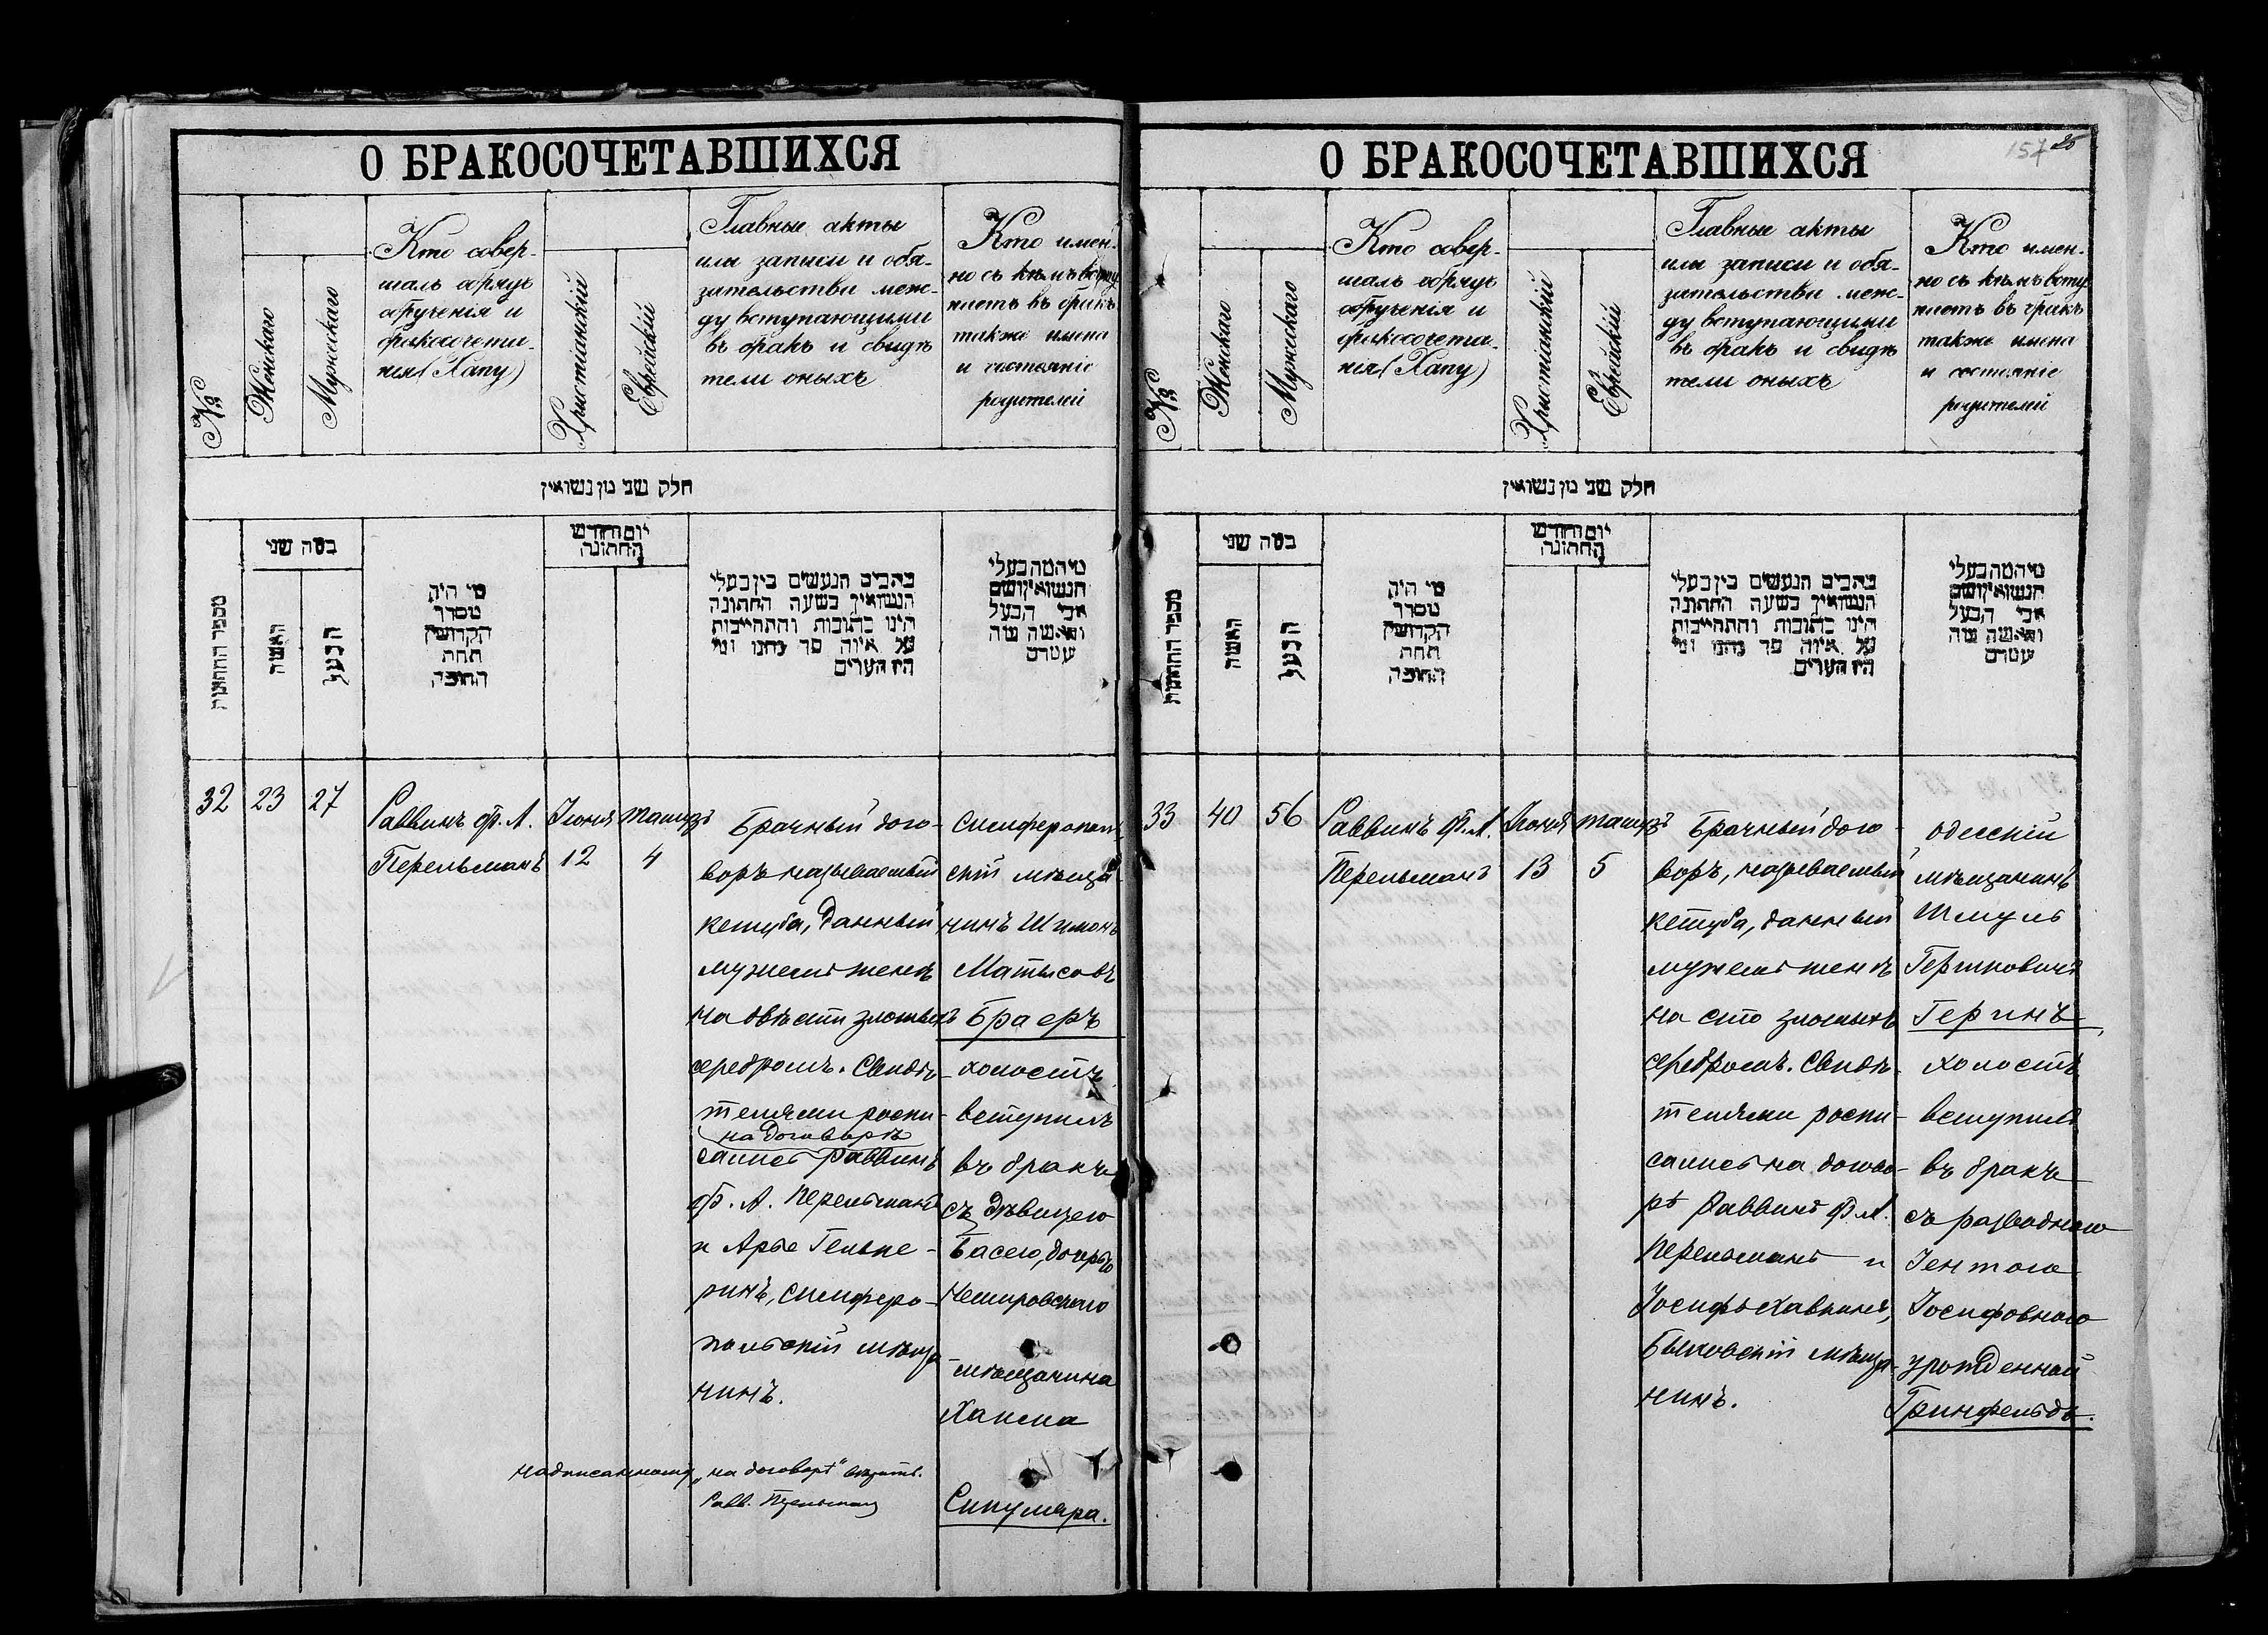 О БРАКОСОЧЕТАВШИХСЯ
№
Женскаго
Мужескаго
Кто совер-
шалъ обрядъ
обрученія и
бракосочета-
нія (Хапу)
Христіанскій
Еврейскій
Главные акты
или записи и обя-
зательства меж-
ду вступающими
въ бракъ и свидѣ
тели оныхъ
Кто имен-
но съ кѣмъ всту
паетъ въ бракъ
также имена
и состояніе
родителей
חלק שני מן נשואין
מספר החתונות
כמה שני
האשה
הבעל
מי היה
מסדר
הקדושין
תחת
החופה
יום וחודש
החתונה
הנעשים בין בעלי
הנשואין בשעה החתונה
היינו כתובות והתחייבות
על איזה סך
32
23
27
Раввинъ Ф. Л.
Перельманъ
Іюня
12
Тамузъ
4
Брачный дого-
воръ называемый
кетуба, данный
мужемъ женѣ
на двѣсти злотыхъ
серебромъ. Свидѣ-
телями роспи-
на договорѣ
сались раввинъ
Ф. Л. Перельманъ
и Арье Гельпе-
ринъ, симферо-
польскій мѣща
нинъ.
надписанному „на договорѣ" вѣрить.
Равв. Перельманъ
Симферополь
скій мѣща
нинъ Шимонъ
Матысовъ
Браеръ
холостъ
вступилъ
въ бракъ
съ дѣвицею
Басею, дочерью
Немировскаго
мѣщанина
Хаима
Сикуляра.
О БРАКОСОЧЕТАВШИХСЯ
157 25
№
Женскаго
Мужескаго
Кто совер-
шалъ обрядъ
обрученія и
бракосочета-
нія (Хапу)
Христіанскій
Еврейскій
Главные акты
или записи и обя-
зательства меж-
ду вступающими
въ бракъ и свидѣ
тели оныхъ
Кто имен-
но съ кѣмъ всту
паетъ въ бракъ
также имена
и состояніе
родителей
חלק שני מן נשואין
מספר החתונות
כמה שני
האשה
הבעל
מי היה
מסדר
הקדושין
תחת
החופה
יום וחודש
החתונה
הנעשים בין בעלי
הנשואין בשעה החתונה
היינו כתובות והתחייבות
על איזה סך
33
40
56
Раввинъ Ф. Л.
Перельманъ
Іюня
13
Тамузъ
5
Брачный дого-
воръ, называемый
кетуба, данный
мужемъ женѣ
на сто злотыхъ
серебромъ. Свидѣ-
телями роспи-
сались на догово-
рѣ Раввинъ Ф. Л.
Перельманъ и
Іосифъ Хавкинъ,
Быховскій мѣща-
нинъ.
одесскій
мѣщанинъ
Шмуль
Гершковичъ
Гершъ
холостъ
вступилъ
въ бракъ
съ разводною
Іентою
Іосифовною
урожденной
Гринфельдъ.